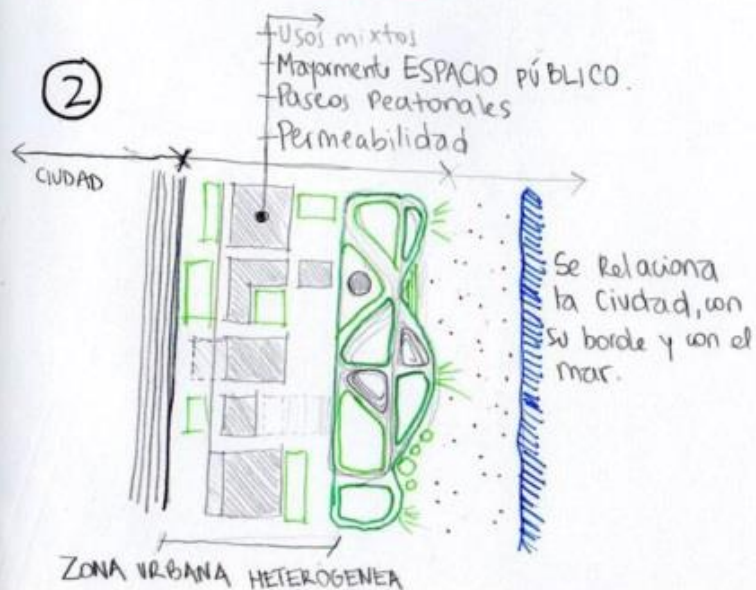 2
Usos mixtos
Mayormente ESPACIO PÚBLICO.
Paseos Peatonales
Permeabilidad
CIUDAD
Se Relaciona
la Ciudad, con
su borde y con el
mar.
ZONA URBANA HETEROGENEA